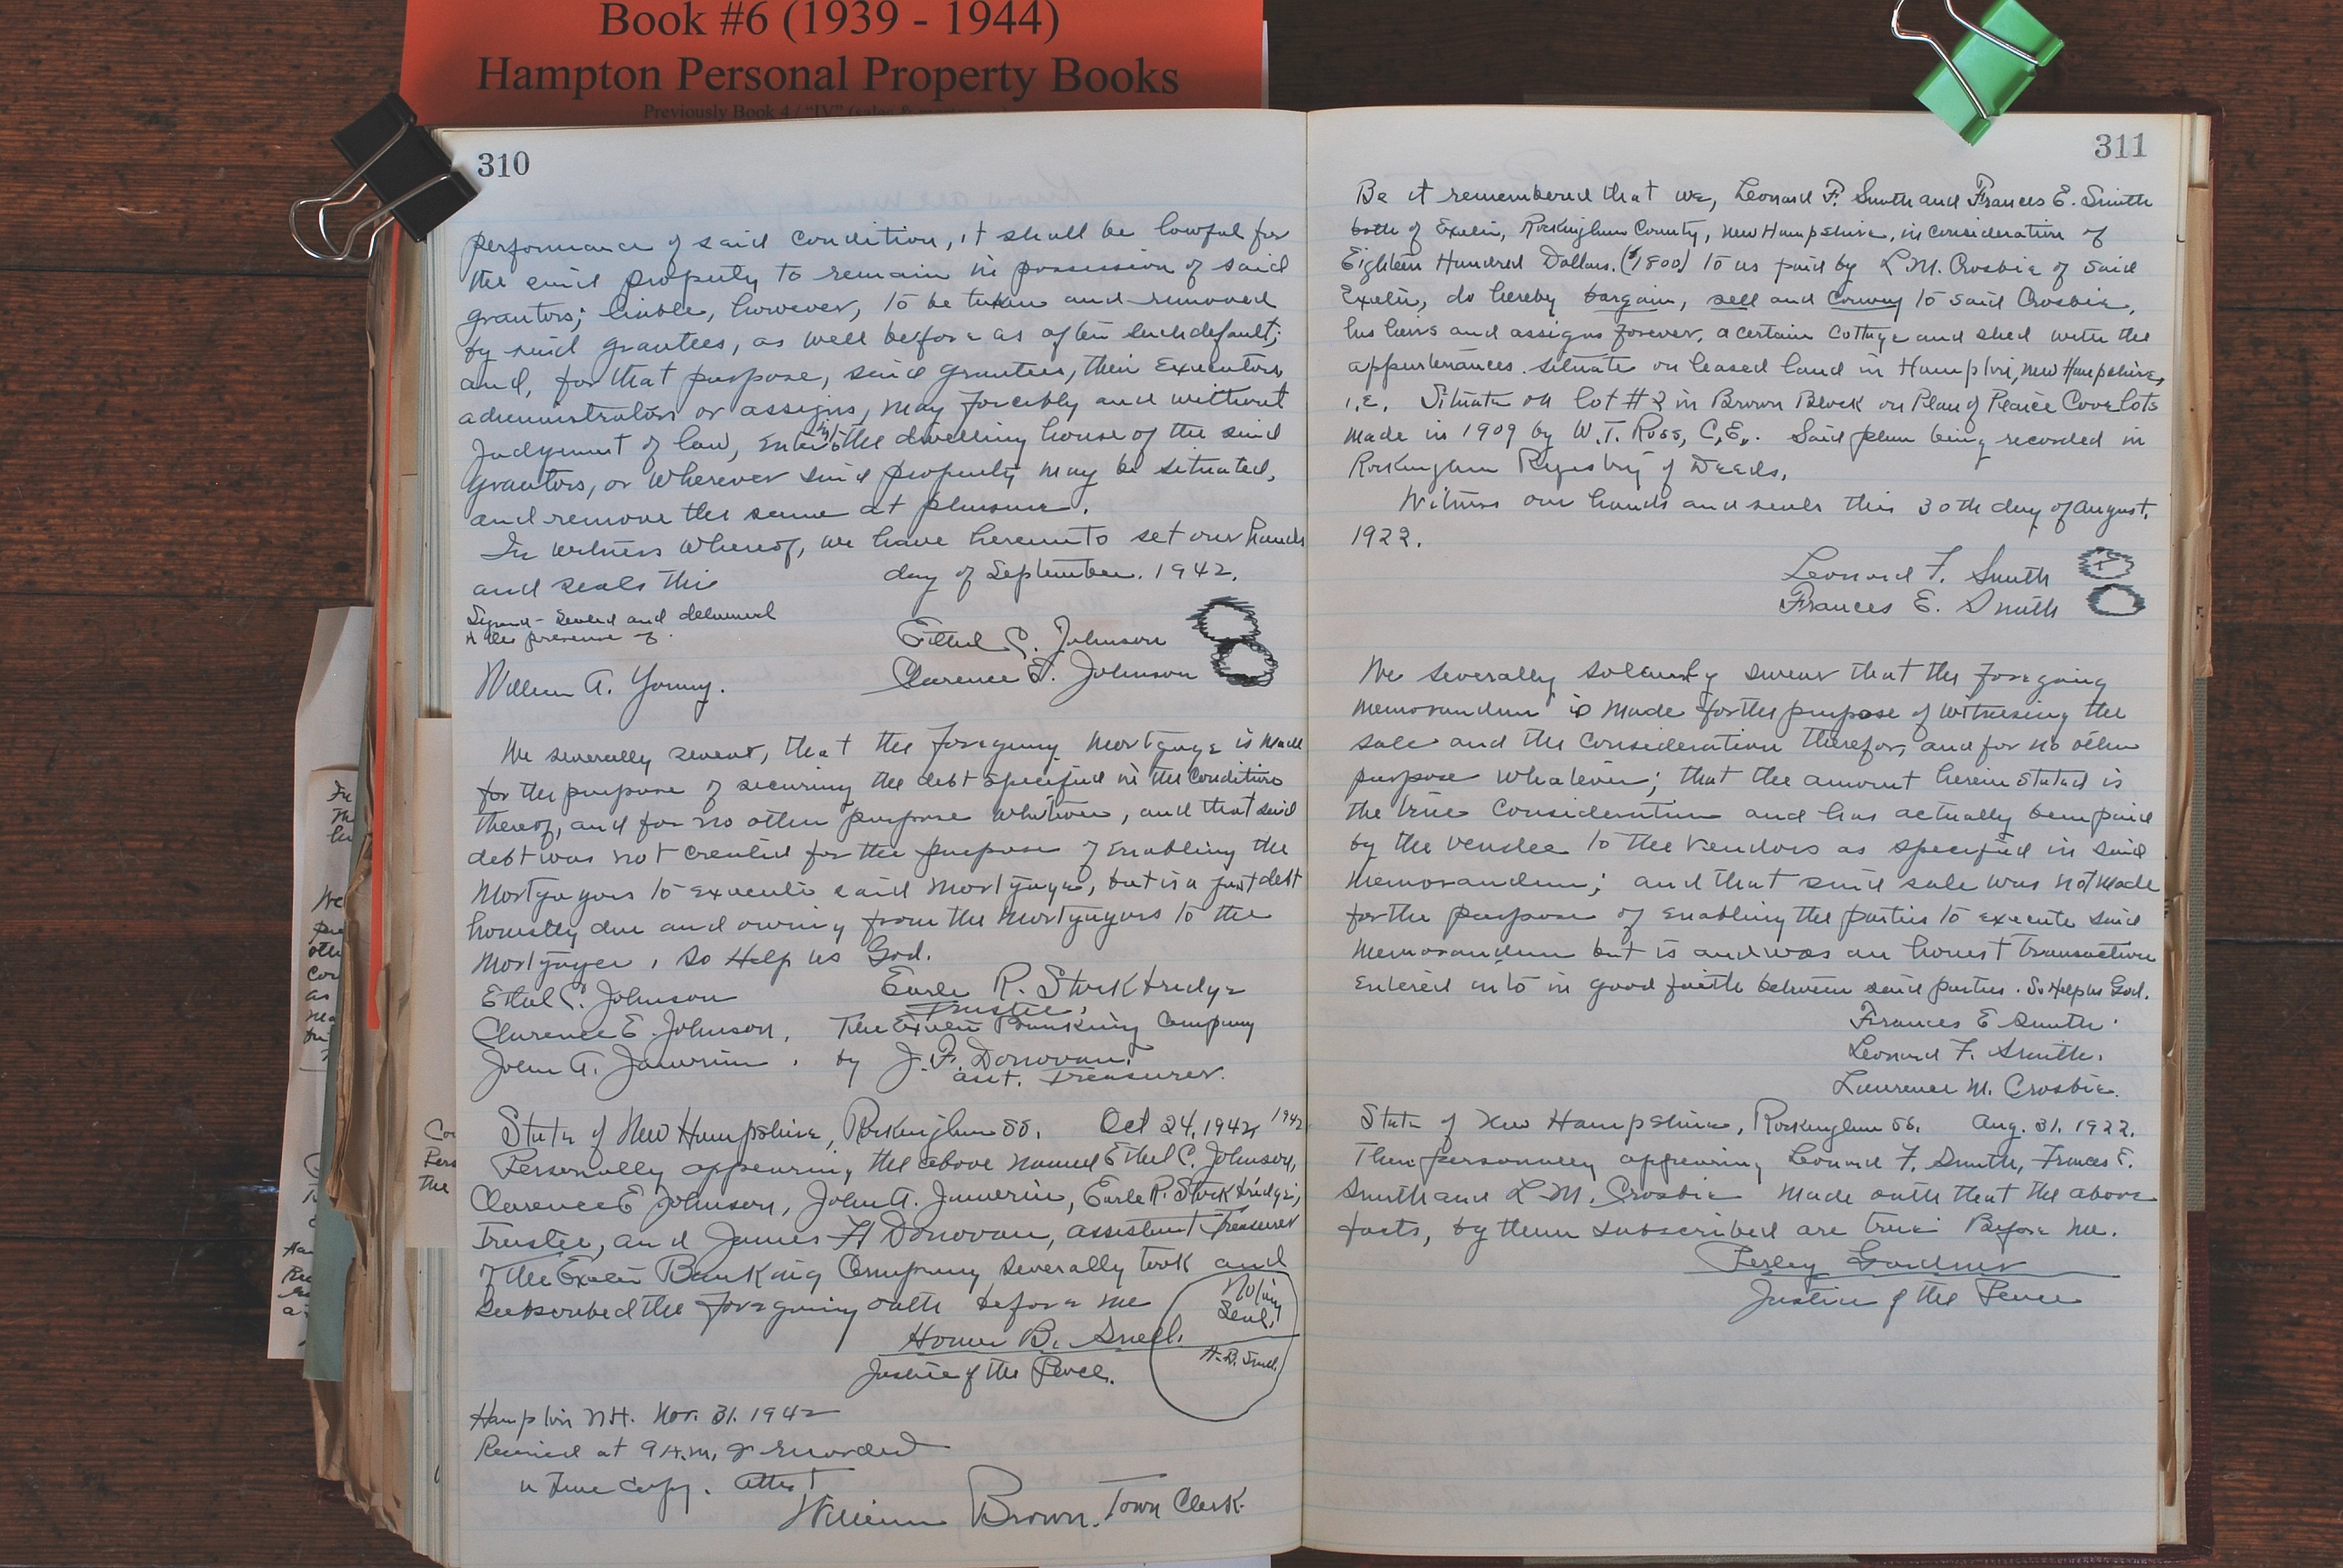 Book #6 (1939 - 1944)
Hampton Personal Property Books
Previously Book 4 / "IV"
310
performance of said condition, it shall be lawful for
the said property to remain in possession of said
grantors; liable, however, to be taken and removed
by said grantees, as well before as after such default;
and, for that purpose, said grantees, their Executors,
administrators or assigns, may forcibly and without
Judgment of law, enter the dwelling house of the said
grantors, or wherever said property may be situated,
and remove the same at pleasure.
In witness whereof, we have hereunto set our hands
and seals this day of September. 1942.
Signed - Sealed and delivered
in the presence of.
Ethel C. Johnson
William A. Young. Clarence E. Johnson
We severally swear, that the foregoing Mortgage is made
for the purpose of securing the debt specified in the condition
thereof, and for no other purpose whatever, and that said
debt was not created for the purpose of enabling the
Mortgagors to execute said Mortgage, but is a just debt
honestly due and owing from the Mortgagors to the
Mortgagee, so Help us God.
Ethel C. Johnson Earle R. Stockbridge
Trustee,
Clarence E. Johnson, The Exeter Banking Company
John A. Janvrin, by J. F. Donovan.
asst. Treasurer.
State of New Hampshire, Rockingham ss. Oct 24, 1942, 1942
Personally appearing the above named Ethel C. Johnson,
Clarence E Johnson, John A. Janvrin, Earle R. Stockbridge,
Trustee, and James F Donovan, assistant Treasurer
of the Exeter Banking Company severally took and
subscribed the foregoing oath before me
Homer B. Snell.
Justice of the Peace.
Notary
Seal.
H. B. Snell
Hampton N.H. Nov. 31. 1942
Received at 9 A.M. & recorded
a True Copy. Attest
William Brown. Town Clerk.
311
Be it remembered that we, Leonard F. Smith and Frances E. Smith
both of Exeter, Rockingham County, New Hampshire, in consideration of
Eighteen Hundred Dollars. ($1800) to us paid by L. M. Crosbie of said
Exeter, do hereby bargain, sell and convey to said Crosbie,
his heirs and assigns forever, a certain Cottage and shed with the
appurtenances. situate on leased land in Hampton, New Hampshire,
i.e. Situate on lot #2 in Brown Block on Plan of Plaice Cove lots
made in 1909 by W. T. Ross, C.E.. Said plan being recorded in
Rockingham Registry of Deeds.
Witness our hands and seals this 30th day of August,
1922.
Leonard F. Smith
Frances E. Smith
We severally solemnly swear that the foregoing
memorandum is made for the purpose of witnessing the
sale and the consideration therefor, and for no other
purpose whatever; that the amount herein stated is
the true consideration and has actually been paid
by the vendee to the vendors as specified in said
memorandum; and that said sale was not made
for the purpose of enabling the parties to execute said
memorandum but is and was an honest transaction
entered into in good faith between said parties. So Help us God.
Frances E Smith.
Leonard F. Smith.
Laurence M. Crosbie.
State of New Hampshire, Rockingham ss. Aug. 31. 1922.
Then personally appearing Leonard F. Smith, Frances E.
Smith and L. M. Crosbie made oath that the above
facts, by them subscribed are true Before me.
Perley Gardner
Justice of the Peace